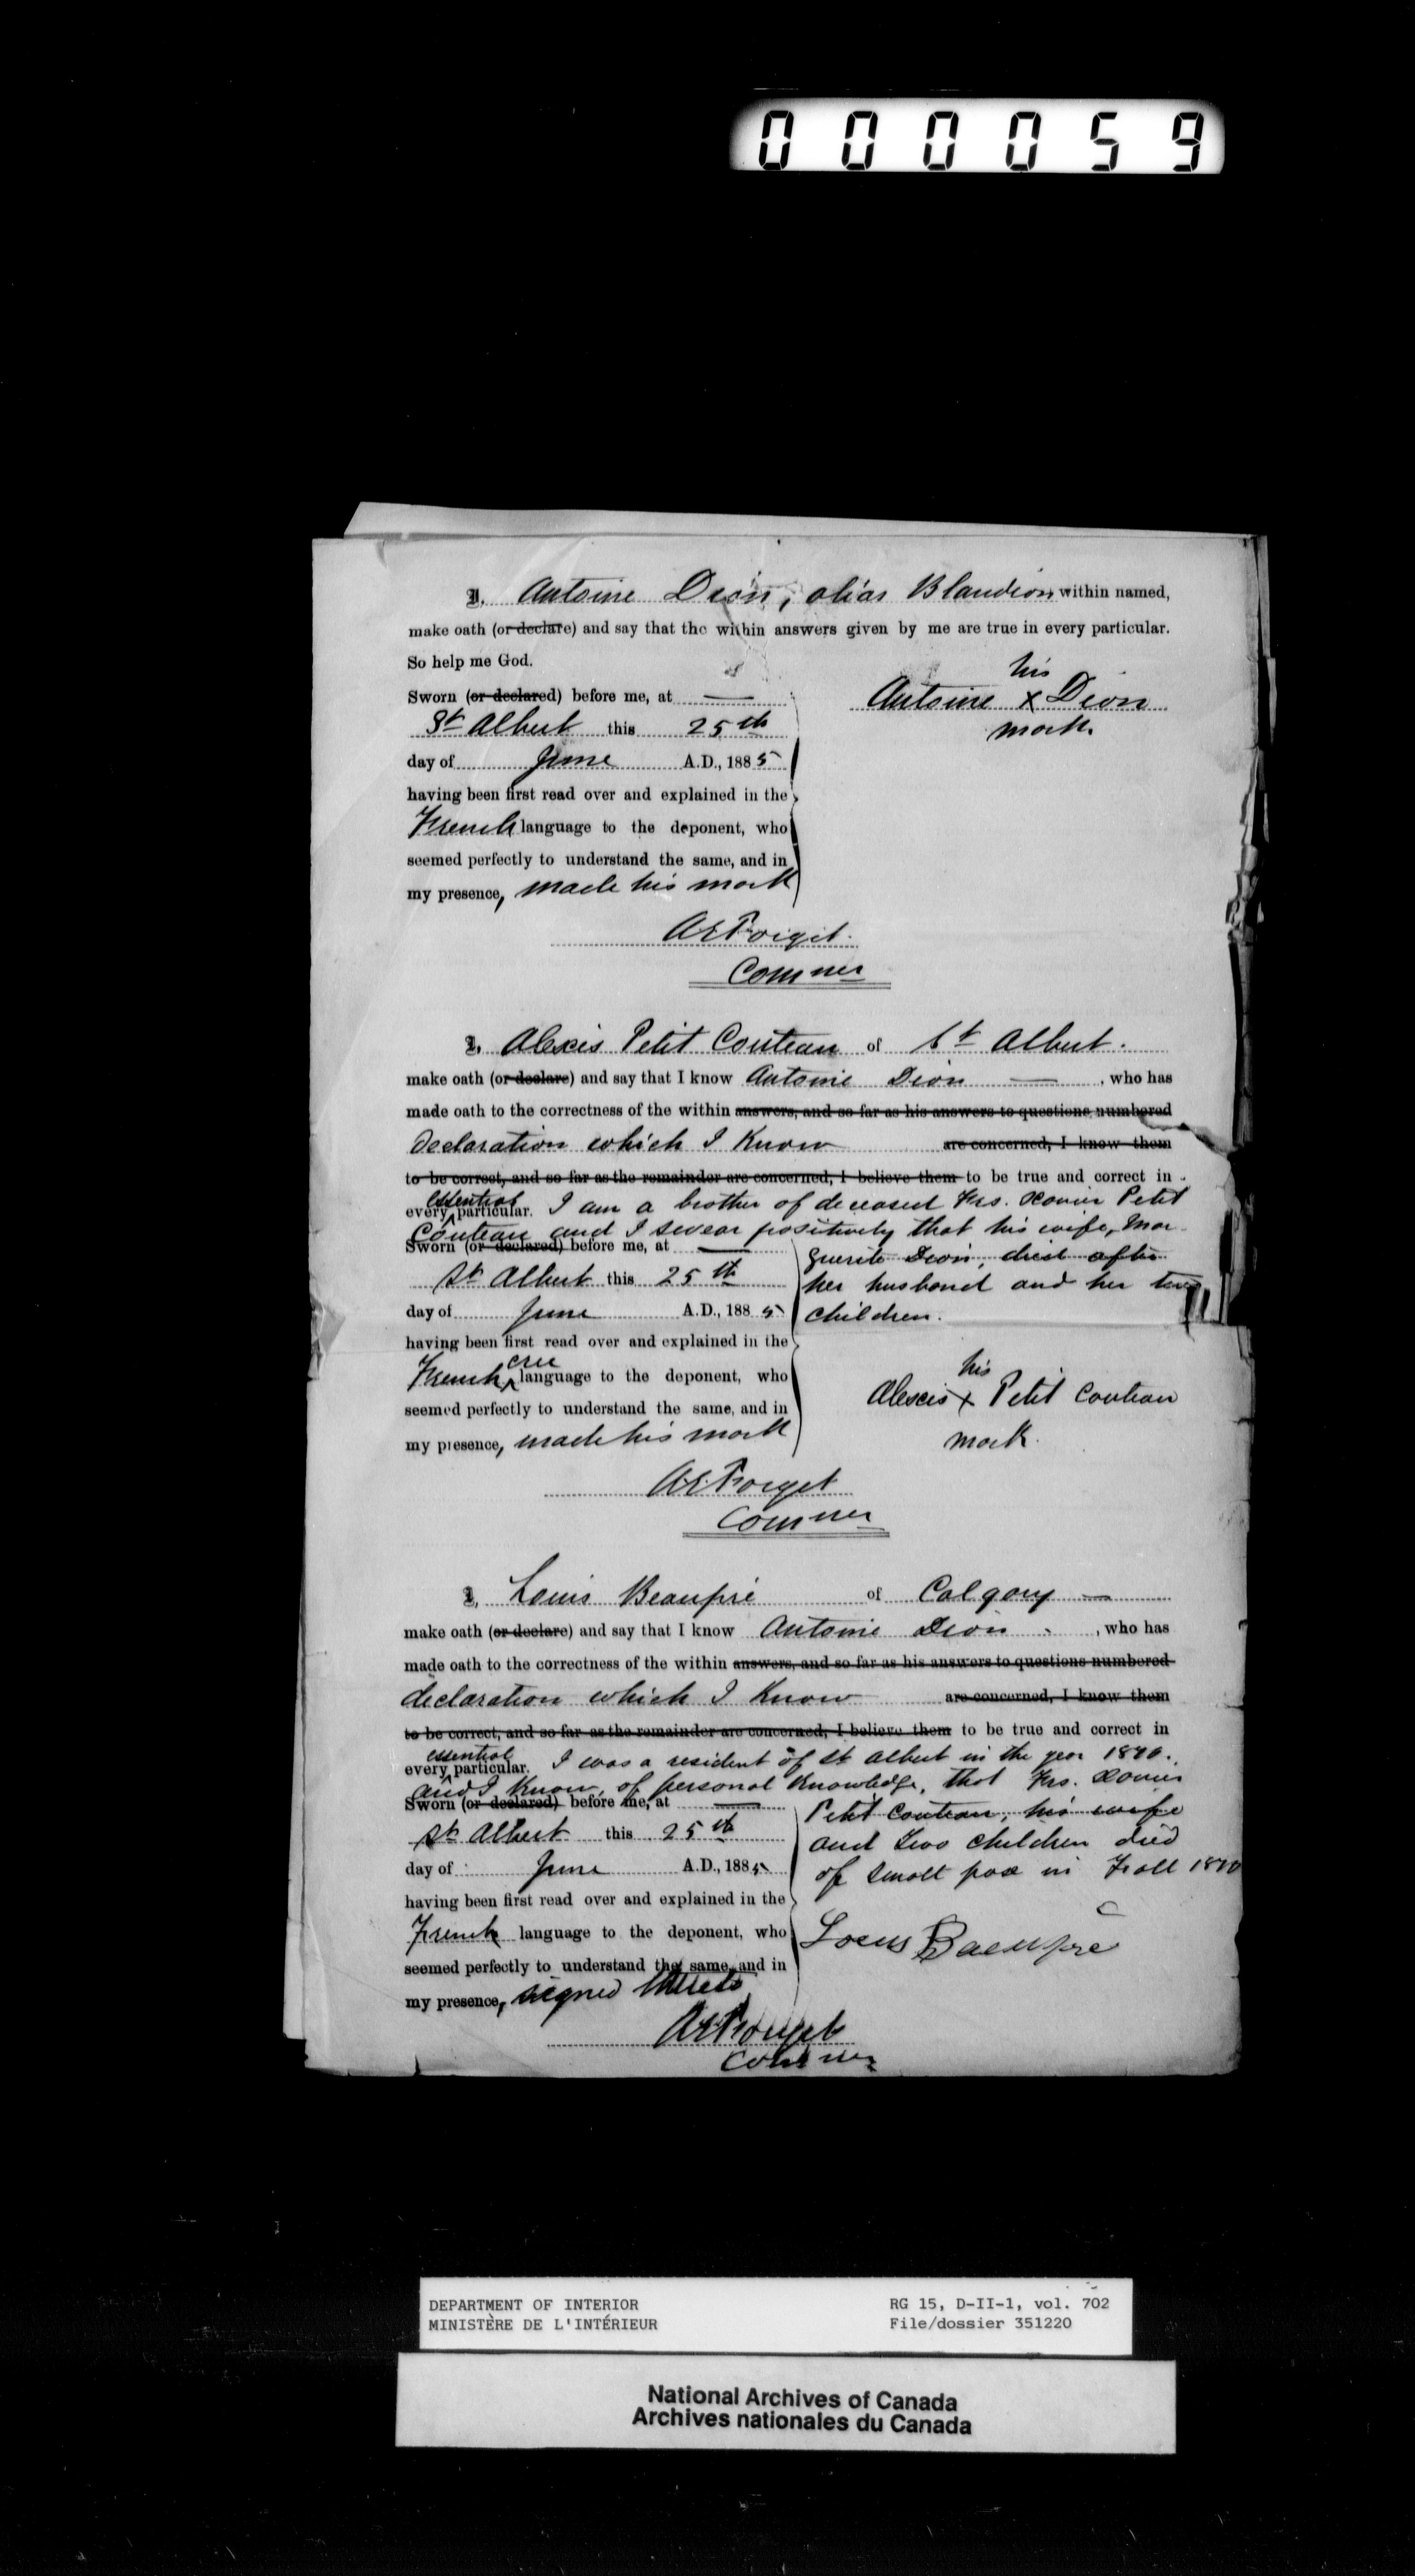 000059
I, Antoine Dion, alias Blandion within named,
make oath (or declare) and say that the within answers given by me are true in every particular.
So help me God.
his
Sworn (or declared) before me, at — Antoine x Dion
St Albert this 25th mark.
day of June A.D., 1885
having been first read over and explained in the
French language to the deponent, who
seemed perfectly to understand the same, and in
my presence, made his mark
AEForget
Commer
I, Alexis Petit Couteau of St Albert.
make oath (or declare) and say that I know Antoine Dion —, who has
made oath to the correctness of the within answers, and so far as his answers to questions numbered
declaration which I know are concerned, I know them
to be correct, and so far as the remainder are concerned, I believe them to be true and correct in
essential
every particular. I am a brother of deceased Frs. Xavier Petit
Couteau and I swear positively that his wife, Mar-
Sworn (or declared) before me, at — guerite Dion, died after
St Albert this 25th her husband and her two
day of June A.D., 1885 children.
having been first read over and explained in the
cree his
French language to the deponent, who Alexis x Petit Couteau
seemed perfectly to understand the same, and in
my presence, made his mark mark.
AEForget
Commer
I, Louis Beaupré of Calgary —
make oath (or declare) and say that I know Antoine Dion, who has
made oath to the correctness of the within answers, and so far as his answers to questions numbered
declaration which I know are concerned, I know them
to be correct, and so far as the remainder are concerned, I believe them to be true and correct in
essential
every particular. I was a resident of St Albert in the year 1870.
and I know, of personal knowledge, that Frs. Xavier
Sworn (or declared) before me, at — Petit Couteau, his wife
St Albert this 25th and two children died
day of June A.D., 1885 of small pox in Fall 1870
having been first read over and explained in the
French language to the deponent, who Louis Baeupre
seemed perfectly to understand the same, and in
my presence, signed thereto
AEForget
Commer
DEPARTMENT OF INTERIOR RG 15, D-II-1, vol. 702
MINISTÈRE DE L'INTÉRIEUR File/dossier 351220
National Archives of Canada
Archives nationales du Canada